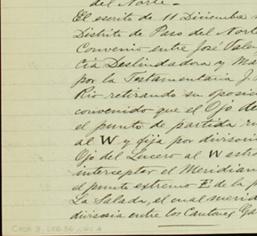 del Norte.-
El escrito de 11 Diciembre
Distrito de Paso del Norte
Convenio entre José Vale
cia Deslindadora y Ma
por la Testamentaria J.
Rio retirando su oposici
convenido que el Ojo de
el punto de partida
al W y fija por divisori
Ojo del Lucero al W
interceptar el Meridian
el punto extremo E de la
La Salada, el cual merid
divisoria entre los Cantones Ga